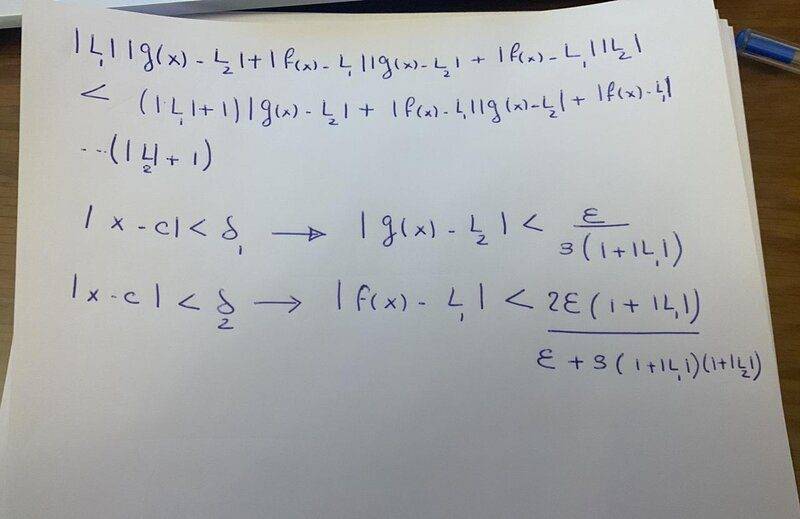 |L₁||g(x) - L₂| + |f(x) - L₁||g(x) - L₂| + |f(x) - L₁||L₂|
< (|L₁| + 1)|g(x) - L₂| + |f(x) - L₁||g(x) - L₂| + |f(x) - L₁|
...(|L₂| + 1)
|x - c| < δ₁ → |g(x) - L₂| < ε / 3(1 + |L₁|)
|x - c| < δ₂ → |f(x) - L₁| < 2ε(1 + |L₁|) / ε + 3(1 + |L₁|)(1 + |L₂|)